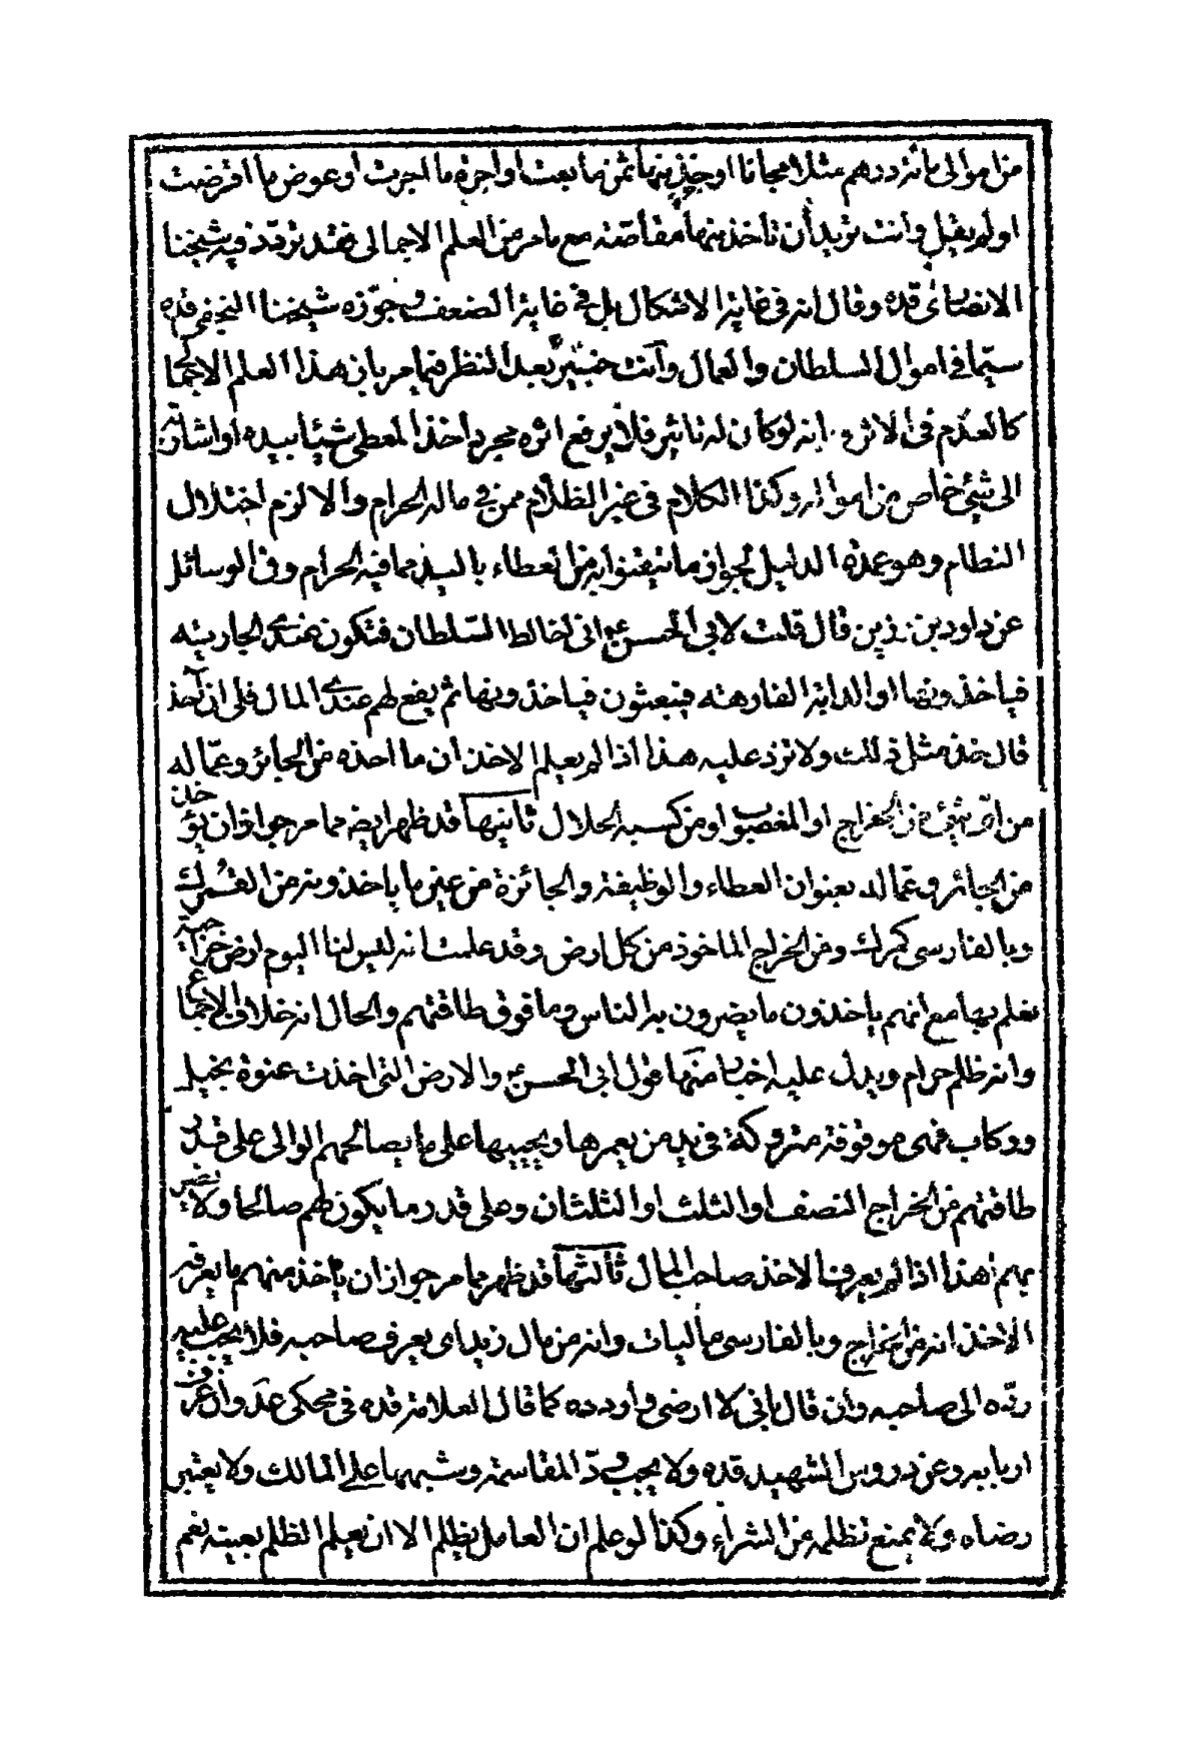 من اموالى مائة درهم مثلا مجانا او خذ منها ثمن ما بعت او اجرة ما اجرت او عوض ما اقرضت
او لم يقبل وانت تريد أن تأخذ منها مقاصّة مع ما مر من العلم الاجمالى فقد تردّد فيه شيخنا
الانصارى قده وقال انه فى غاية الاشكال بل فى غاية الضعف وجوّزه شيخنا النجفى قده
سيّما فى اموال السلطان والعمال وأنت خبير بعد النظر فيما مر بان هذا العلم الاجما
كالعدم فى الاثر وانه لو كان له تاثير فلا يرفع اثره مجرد اخذ المعطى شيئا بيده او اشارته
الى شئ خاص من امواله وكذا الكلام فى غير الظلام ممن فى ماله الحرام والا لزم اختلال
النظام وهو عمدة الدليل لجواز ما تيقنوا به من اعطاء باليد مما فيه الحرام وفى الوسائل
عن داود بن رزين قال قلت لابى الحسن ع انى اخالط السّلطان فتكون عندى الجارية
فياخذونها او الدابة الفارهة فيبعثون فياخذونها ثم يقع لهم عندى المال فلى ان آخذ
قال خذ مثل ذلك ولا تزد عليه هذا اذا لم يعلم الاخذ ان ما اخذه من الجائر وعمّاله
من اىّ شئ من الخراج او المغصوب او من كسبه الحلال ثانيها قد ظهر ايضا مما مر جواز ان يؤخذ
من الجائر وعماله بعنوان العطاء والوظيفة والجائزة من عين ما ياخذونه من الغمرك
وبالفارسى كمرك ومن الخراج الماخوذ من كل ارض وقد علمت انه ليس لنا اليوم ارض خراجية
نعلم بها مع انهم يأخذون ما يضرون به الناس وما فوق طاقتهم والحال انه خلاف الاجماع
وانه ظلم حرام ويدل عليه اخبار منها قول ابى الحسن ع والارض التى اخذت عنوة بخيل
وركاب فهى موقوفة متروكة فى يد من يعمرها ويحييها على ما يصالحهم الوالى على قدر
طاقتهم من الخراج النصف او الثلث او الثلثان وعلى قدر ما يكون لهم صالحا ولا يضر
بهم هذا اذا لم يعرف الاخذ صاحب المال ثالثها قد ظهر مما مر جواز ان يأخذ منهم ما يعرفه
الاخذ انه من الخراج وبالفارسى ماليات وانه من مال زيد اى يعرف صاحبه فلا يجب عليه
ردّه الى صاحبه وأن قال بانى لا ارضى وأورده كما قال العلامة قده فى محكى عد وان عرف
اربابه وعن دروس الشهيد قده ولا يجب ردّ المقاسمة وشبهها على المالك ولا يعتبر
رضاه ولا يمنع تظلمه عن الشراء وكذا لو علم ان العامل يظلم الا ان يعلم الظلم بعينه نعم